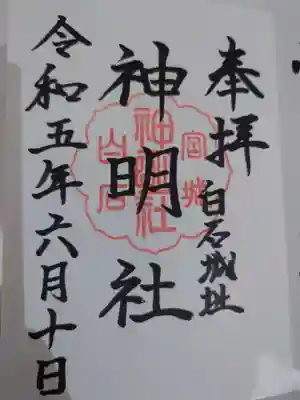 奉拝 白石城址
神明社
令和五年六月十日
宮城
神明社
白石